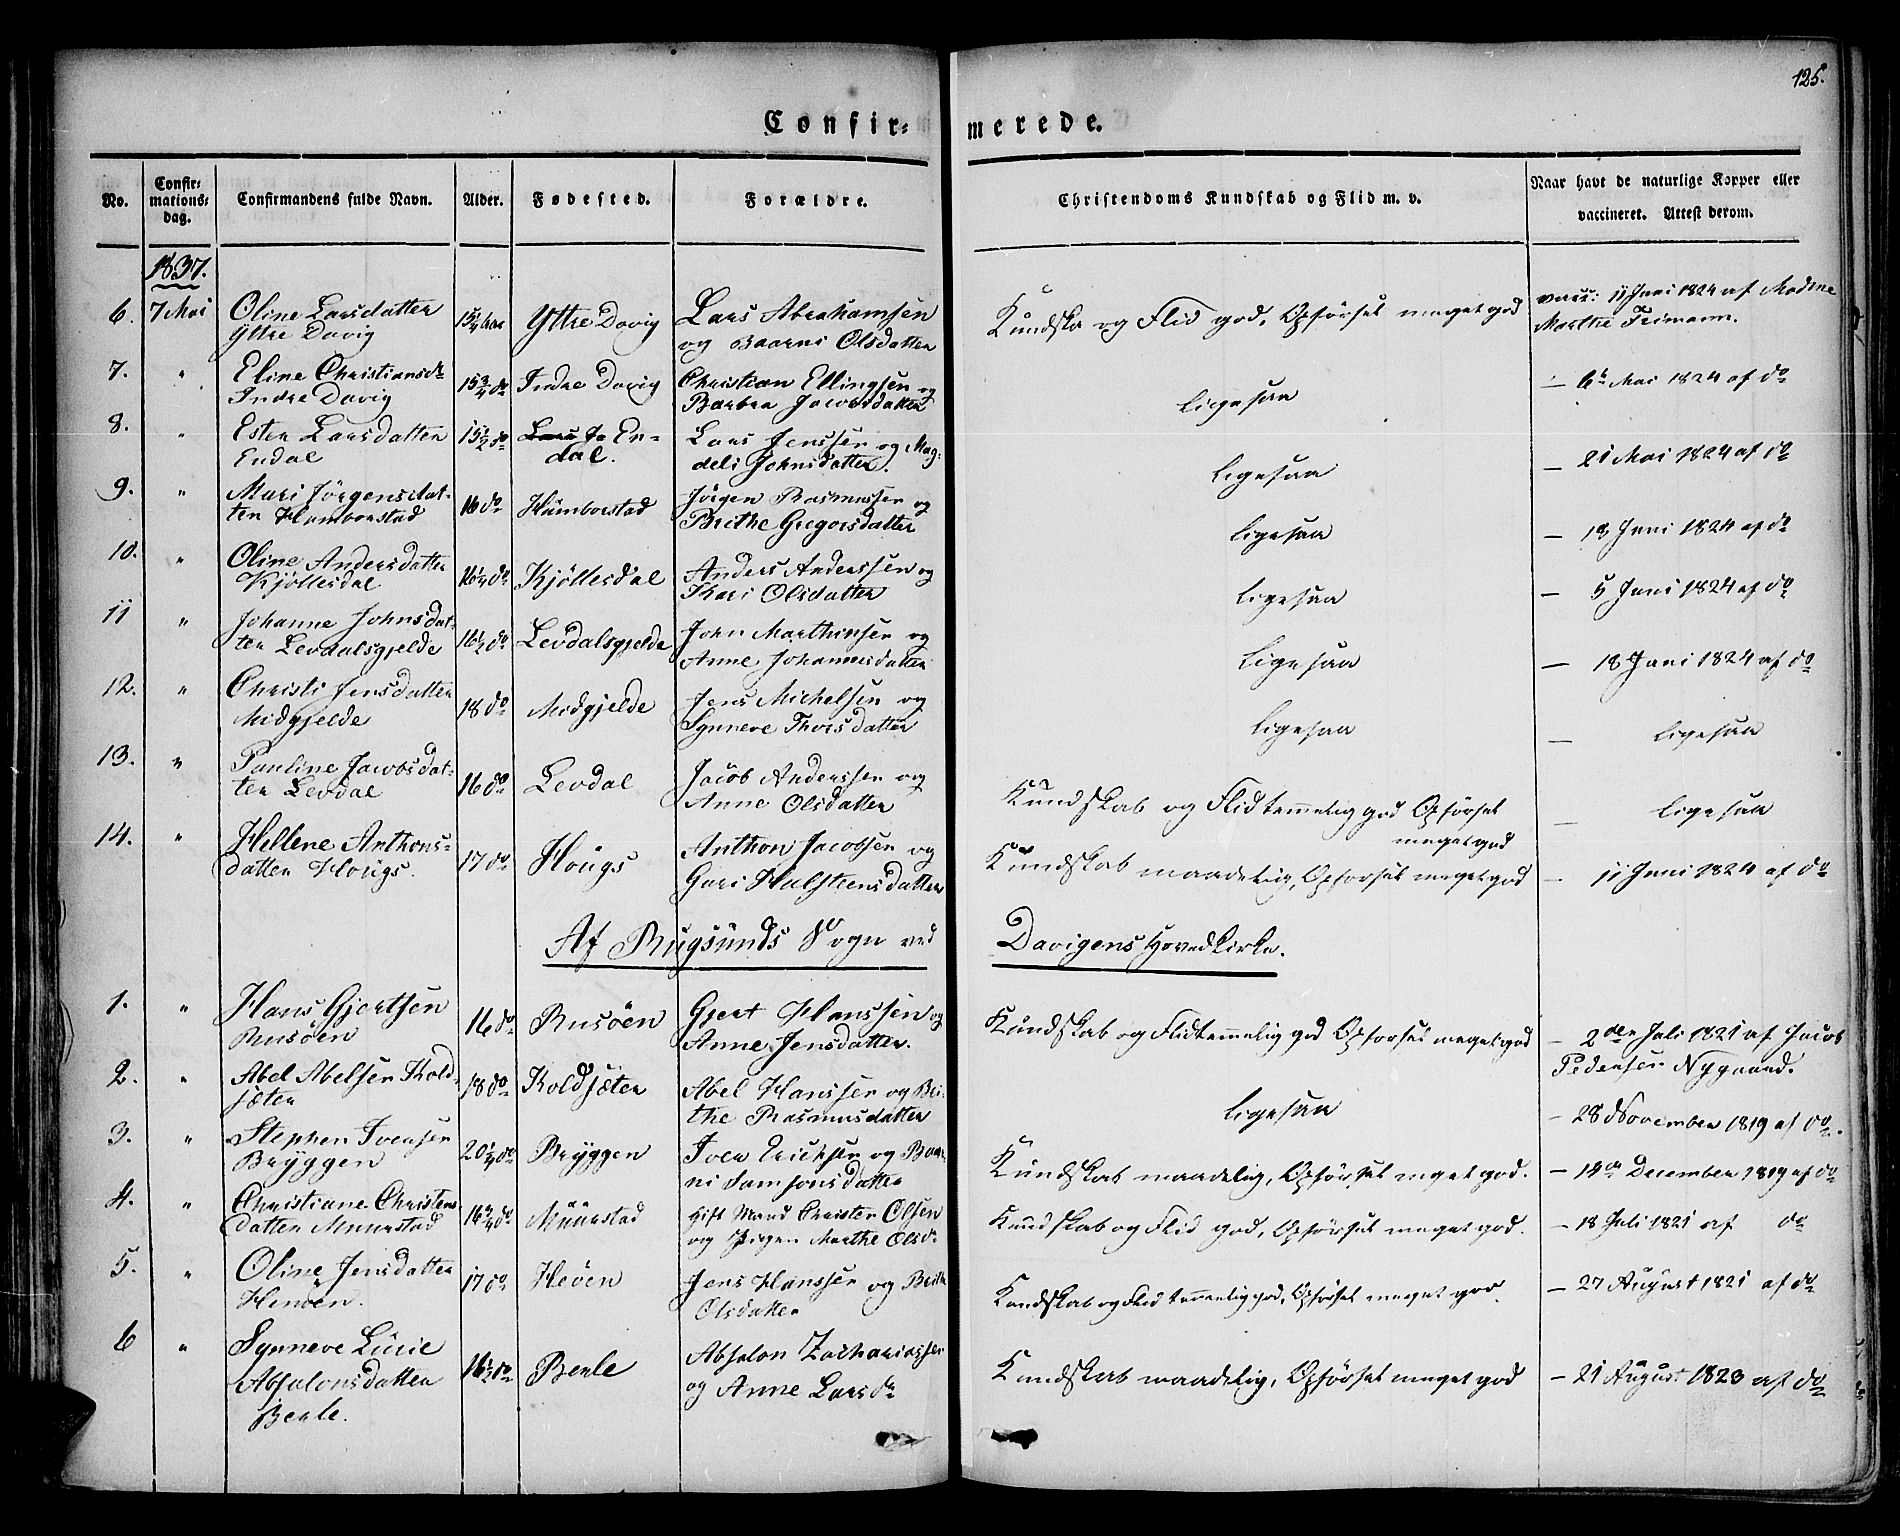 125.
Confir= merede.
No. Confir=mations=dag. Confirmandens fulde Navn. Alder. Fødested. Forældre. Christendoms Kundskab og Flid m. v. Naar havt de naturlige Kopper eller vaccineret. Attest derom.
1837.
6. 7 Mai Oline Larsdatter 15¼ Aar Ytre Davig Lars Abrahamsen Kundska og Flid god, Opførsel meget god vacc: 11 Juni 1824 af Madme
Yttre Davig og Baarni Olsdatter Marthe Frimann.
7. " Eline Christiansdr 15¾ do Indre Davig Christian Ellingsen og ligesaa — 6te Mai 1824 af do
Indre Davig Barbra Jacobsdatter
8. " Ester Larsdatter 15½ do En- Lars Jenssen og Mag- ligesaa — 21 Mai 1824 af do
Endal dal. deli Johnsdatter.
9. " Mari Jørgensdat- 16 do Humborstad Jørgen Rasmussen og ligesaa — 18 Juni 1824 af do
ter Humborstad Brithe Gregorsdatter
10. " Oline Andersdatter 16¼ do Kjöllesdal Anders Anderssen og ligesaa — 5 Juni 1824 af do
Kjöllesdal Kari Olsdatter
11 " Johanne Johnsdat- 16½ do Levdalsgjelde John Marthinsen og ligesaa — 18 Juni 1824 af do
ter Levdalsgjelde Anne Johannesdatter
12. " Christi Jensdatter 18 do Midgjelde Jens Michelsen og ligesaa — ligesaa
Midgjelde Synneve Thorsdatter
13. " Pauline Jacobsdat- 16 do Levdal Jacob Anderssen og Kundskab og Flid temmelig god Opførsel — ligesaa
ter Levdal Anne Olsdatter meget god
14. " Hellene Anthons- 17 do Hougs Anthon Jacobsen og Kundskab maadelig, Opførsel meget god — 11 Juni 1824 af do
datter Hougs. Guri Halsteensdatter
Af Rugsunds Sogn ved Davigens Hovedkirke.
1. " Hans Gjertsen 16 do Rusöen Gjert Hanssen og Kundskab og Flid temmelig god Opførsel meget god — 2den Juli 1821 af Jacob
Rusöen Anne Jensdatter. Pedersen Nygaard.
2. " Abel Abelsen Kold- 18 do Koldsæter Abel Hanssen og Bri- ligesaa — 28 November 1819 af do.
sæter the Rasmusdatter
3. " Stephen Iversen 20¼ do Bryggen Iver Ericksen og Baar- Kundskab maadelig, Opførsel meget god. — 14de December 1819 af do
Bryggen ni Samsonsdatter
4. " Christiane Christens 16¾ do Muurstad Gift Mand Christen Olsen Kundskab og Flid god, Opførsel meget god. — 18 Juli 1821 af do
datter Muurstad og Pigen Marthe Olsdr
5. " Oline Jensdatter 17 do Heöen Jens Hanssen og Brithe Kundskab og Flid temmelig god, Opførsel meget god. — 27 August 1821 af do
Henöen. Olsdatter
6 " Synneve Lucie 16½ do Berle Absalon Zachariassen Kundskab maadelig, Opførsel meget god — 21 August 1823 af do
Absalonsdatter og Anne Larsdr
Berle.